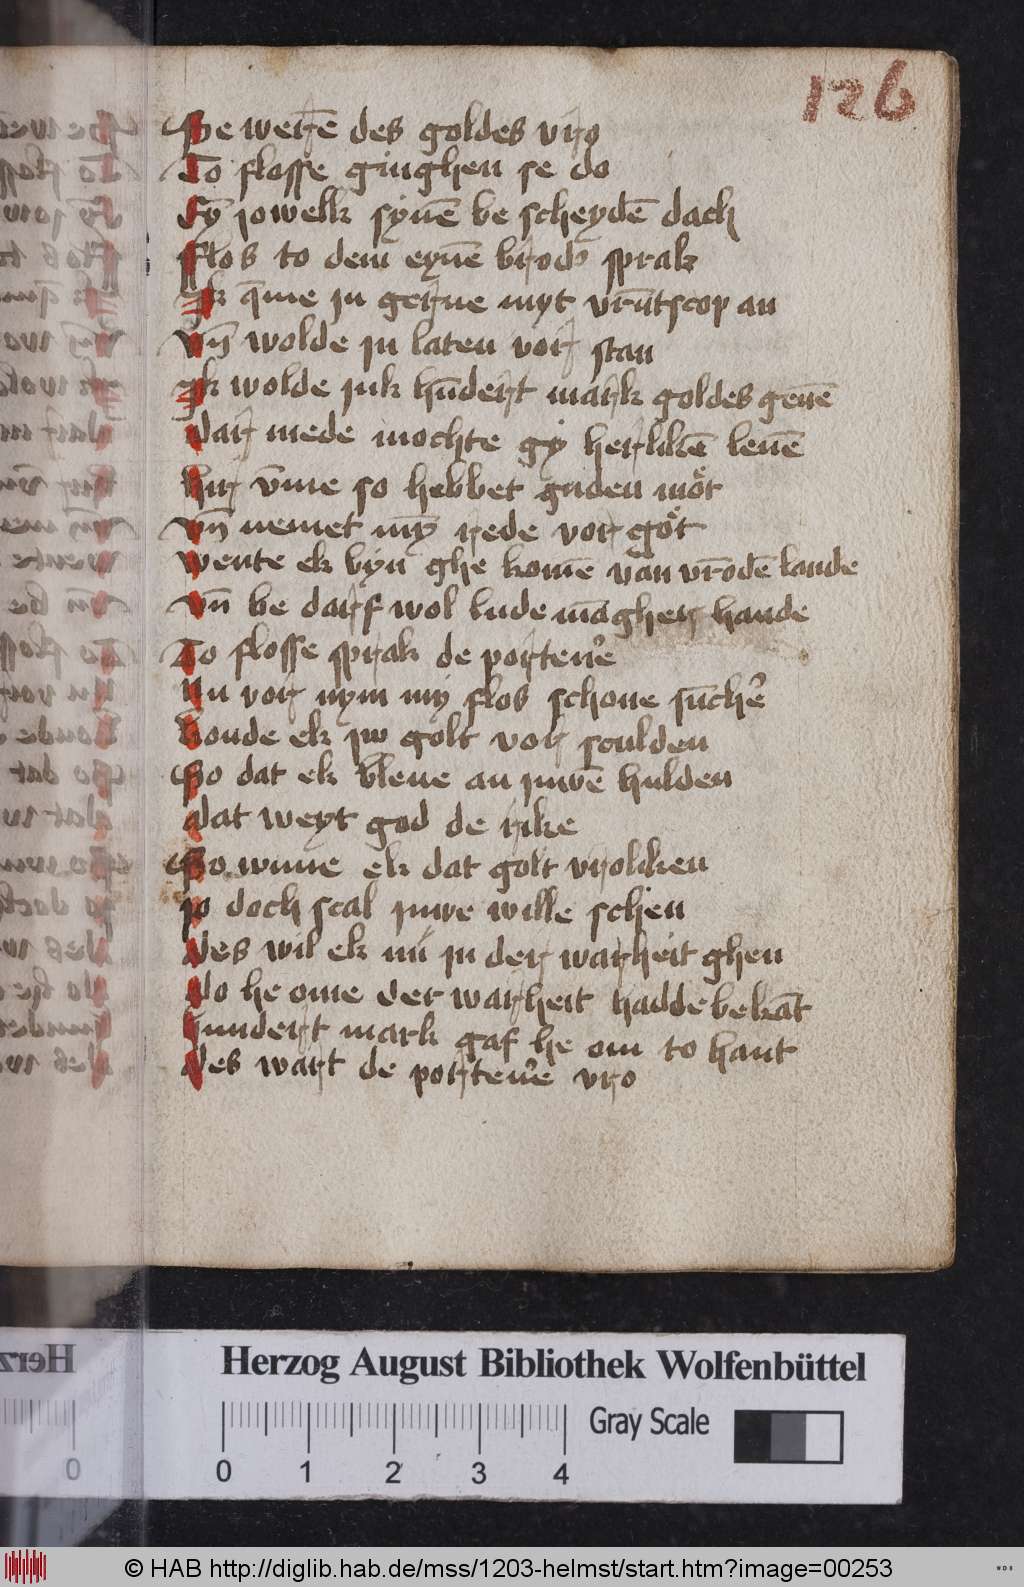 126
Se werē des goldes vro
To flosse ginghen se do
Ey jowelk synē be scheydē dach
Flos to dem eynē brodꝰ sprak
Ik q̄me in gerne myt vrūtscop an
vn̄ wolde ju laten vor stan
Ik wolde juk hūdert mark goldes geuē
Dar mede mochte gy herlikē leuē
Hir v̄me so hebbet guden mo̊t
vn̄ nemet my rede vor go̊t
wente ek byn ghe komē van vrōdē lande
vn̄ be darf wol lude māgher hande
To flosse sprak de portenꝰe
Nu vor nym my flos schone sūcher
konde ek iw golt vor sculden
So dat ek bleue an juwē hulden
Dat weyt god de rike
So wune ek dat golt vroliken
jo doch scal juwe wille schen
des wil ek nu in der warheit ghen
do he ome der warheit hadde bekāt
hundert mark gaf he om to hant
des wart de portenꝰe vro
Herzog August Bibliothek Wolfenbüttel
Gray Scale
0 0 1 2 3 4
© HAB http://diglib.hab.de/mss/1203-helmst/start.htm?image=00253